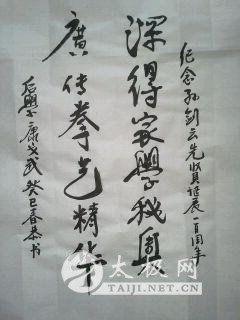 纪念孙剑云先贤诞辰一百周年
深得家學秘奥
廣传拳艺精华
后學康戈武癸巳春恭书
太极网
TAIJI.NET.CN